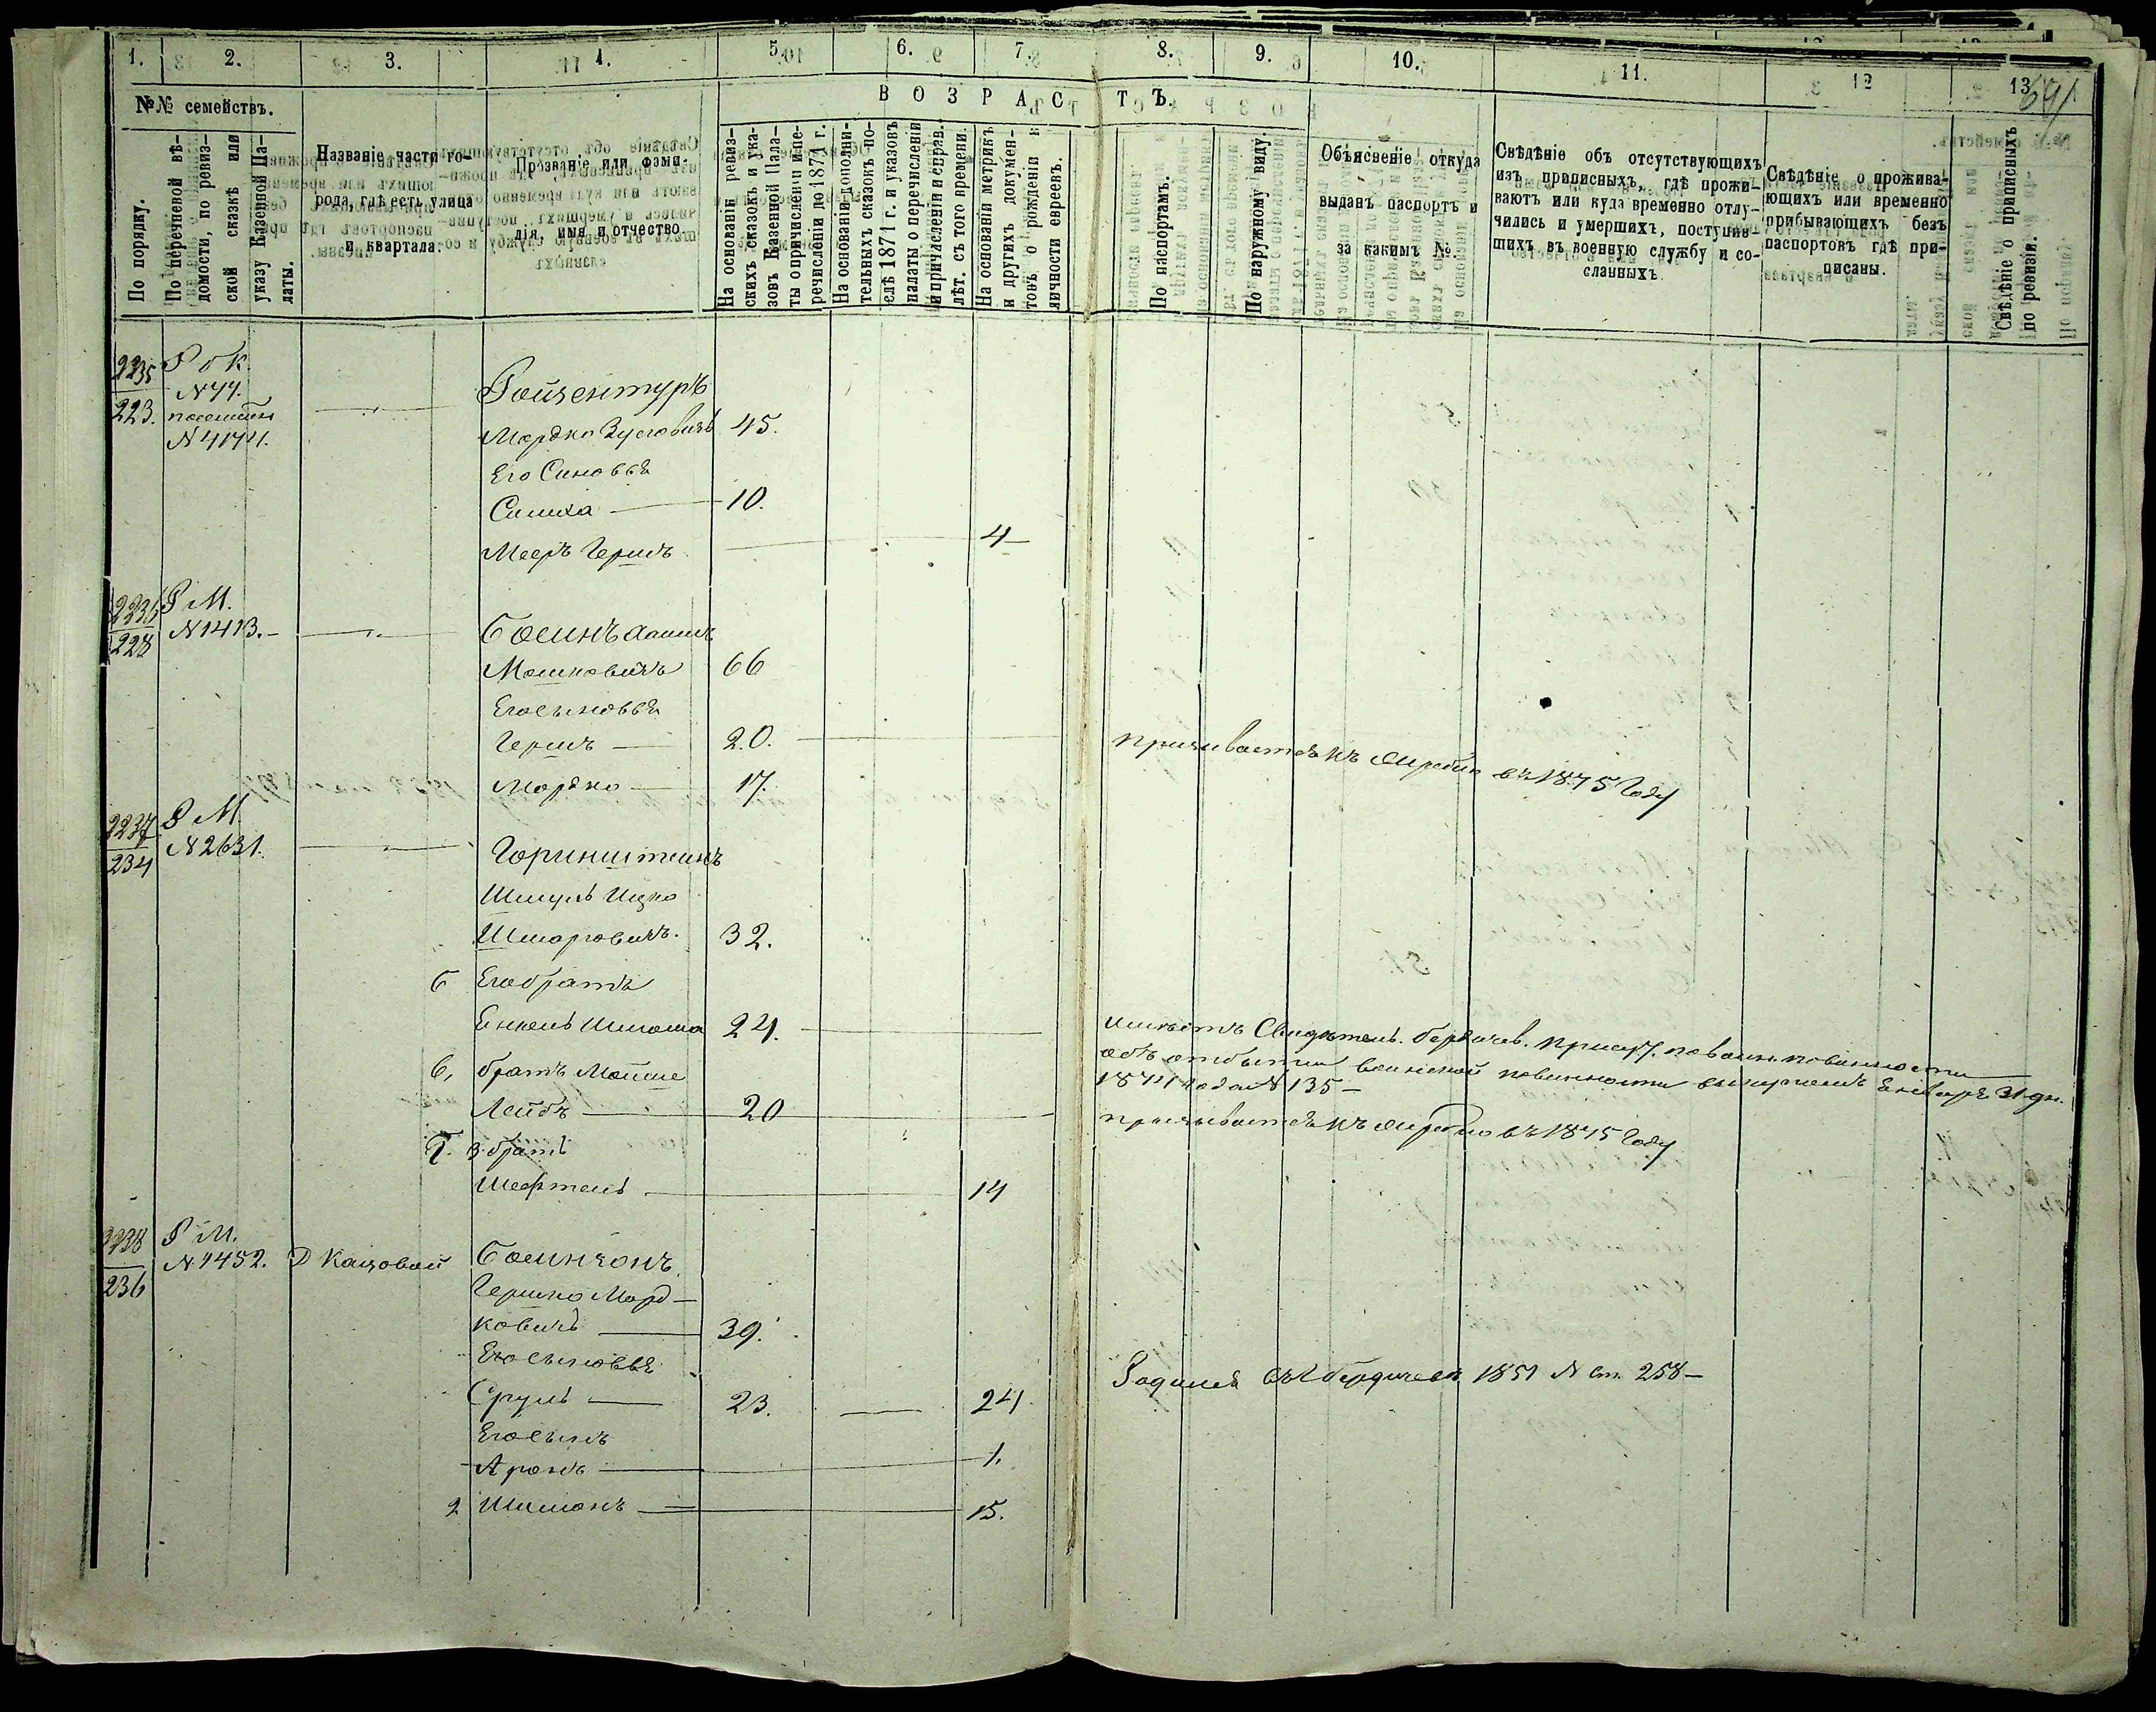 1. 2. 3. 4. 5. 6. 7. 8. 9. 10. 11. 12 13.
691
№№ семействъ.
ВОЗРАСТЪ.
По порядку.
По перечневой вѣ-
домости, по ревиз-
ской сказкѣ или
указу Казенной Па-
латы.
Названіе части го-
рода, гдѣ есть улица
и квартала.
Прозваніе или фами-
лія, имя и отчество.
На основаніи ревиз-
скихъ сказокъ и ука-
зовъ Казенной Пала-
ты о причисленіи и пе-
речисленіи по 1871 г.
На основаніи дополни-
тельныхъ сказокъ по-
слѣ 1871 г. и указовъ
палаты о перечисленіи
и причисленіи и справ.
лѣт. съ того времени.
На основаніи метрикъ
и другихъ докумен-
товъ о рожденіи и
личности евреевъ.
По паспортамъ.
По наружному виду.
Объясненіе откуда
выданъ паспортъ и
за какимъ №.
Свѣдѣніе объ отсутствующихъ
изъ приписныхъ, гдѣ прожи-
ваютъ или куда временно отлу-
чились и умершихъ, поступив-
шихъ въ военную службу и со-
сланныхъ.
Свѣдѣніе о прожива-
ющихъ или временно
прибывающихъ безъ
паспортовъ гдѣ при-
писаны.
Свѣдѣніе о приписныхъ
по ревизіи.
2235
223.
N 77.
N 4174.
Ройзентуръ
Мордко Зусовичъ 45.
Его Синовья
Симха — 10.
Мееръ Гершъ — 4
2236
228
Р М.
N 1413.
Мошковичъ 66
Его сыновья
Гершъ — 20.
призывается къ жребію въ 1875 Году
Мордко — 17.
2237
234
Р М.
N 2631.
Горинштейнъ
Шмуль Ицко
Шмарговичъ. 32.
б Его братъ
24.
имѣетъ Свидѣтель. бердичев. присут. по воин. повинности
объ отбытіи воинской повинности
1874 года N 135 —
в, братъ Мойше
Лейбъ — 20
призывается къ жребію въ 1875 Году
Г. 3. братъ
Шефтель — 14
2238
236
Р М.
N 1452.
Гершко Морд-
ковичъ — 39.
Его сыновья
Сруль — 23. — 24
Родился въ г Бердичевѣ 1851 N ст. 258 —
Его сынъ
Аронъ — 1.
2 Шимонъ — 15.